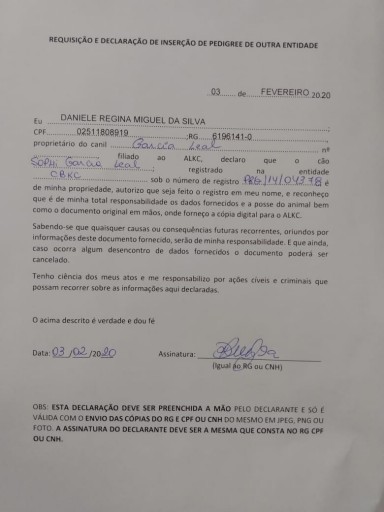 REQUISIÇÃO E DECLARAÇÃO DE INSERÇÃO DE PEDIGREE DE OUTRA ENTIDADE
03 de FEVEREIRO 2020
Eu DANIELE REGINA MIGUEL DA SILVA
CPF 02511808919 ;RG 6196141-0
proprietário do canil Garcia Leal nº
filiado ao ALKC, declaro que o cão
Sophi Garcia Leal registrado na entidade
CBKC sob o número de registro PRG/14/04378 é
de minha propriedade, autorizo que seja feito o registro em meu nome, e reconheço
que é de minha total responsabilidade os dados fornecidos e a posse do animal bem
como o documento original em mãos, onde forneço a cópia digital para o ALKC.
Sabendo-se que quaisquer causas ou consequências futuras recorrentes, oriundos por
informações deste documento fornecido, serão de minha responsabilidade. E que ainda,
caso ocorra algum desencontro de dados fornecidos o documento poderá ser
cancelado.
Tenho ciência dos meus atos e me responsabilizo por ações cíveis e criminais que
possam recorrer sobre as informações aqui declaradas.
O acima descrito é verdade e dou fé
Data: 03/02/2020 Assinatura:
(Igual do RG ou CNH)
OBS: ESTA DECLARAÇÃO DEVE SER PREENCHIDA A MÃO PELO DECLARANTE E SÓ É
VÁLIDA COM O ENVIO DAS CÓPIAS DO RG E CPF OU CNH DO MESMO EM JPEG, PNG OU
FOTO. A ASSINATURA DO DECLARANTE DEVE SER A MESMA QUE CONSTA NO RG CPF
OU CNH.